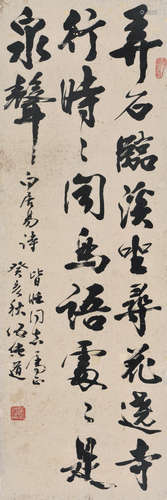 弄石臨溪坐尋花遶寺
行時〻聞鳥語處〻是
泉聲
白居易詩
同志 正
癸亥秋伍純道